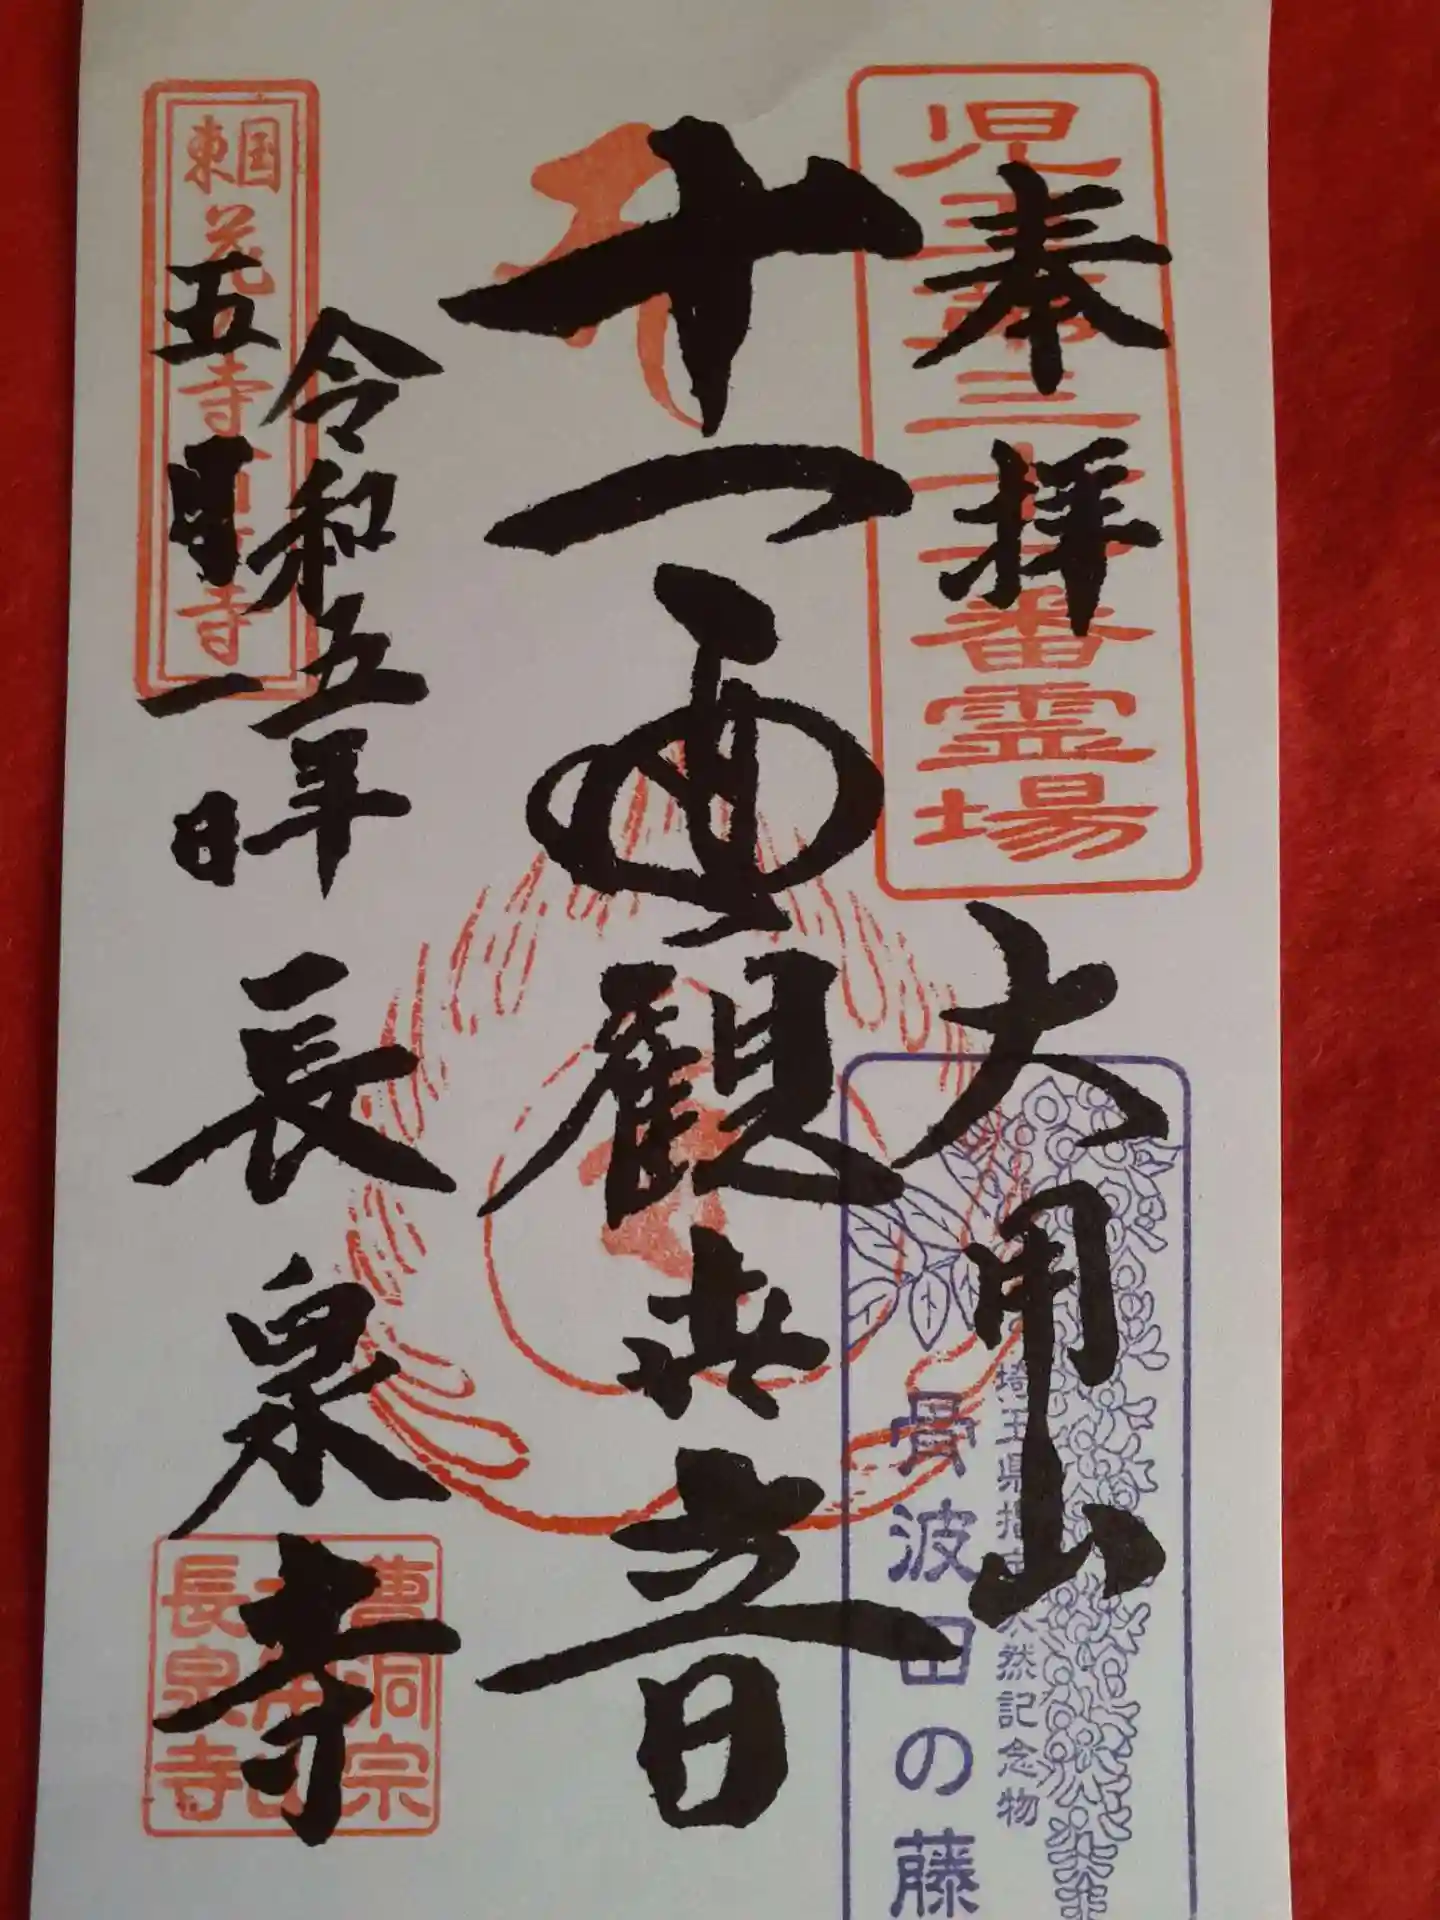 奉拝
大用山
児玉第三十一番霊場
埼玉県指定天然記念物
骨波田の藤
十一面観世音
令和五年
五月一日
長泉寺
東国花の寺百ケ寺
曹洞宗
大用山
長泉寺